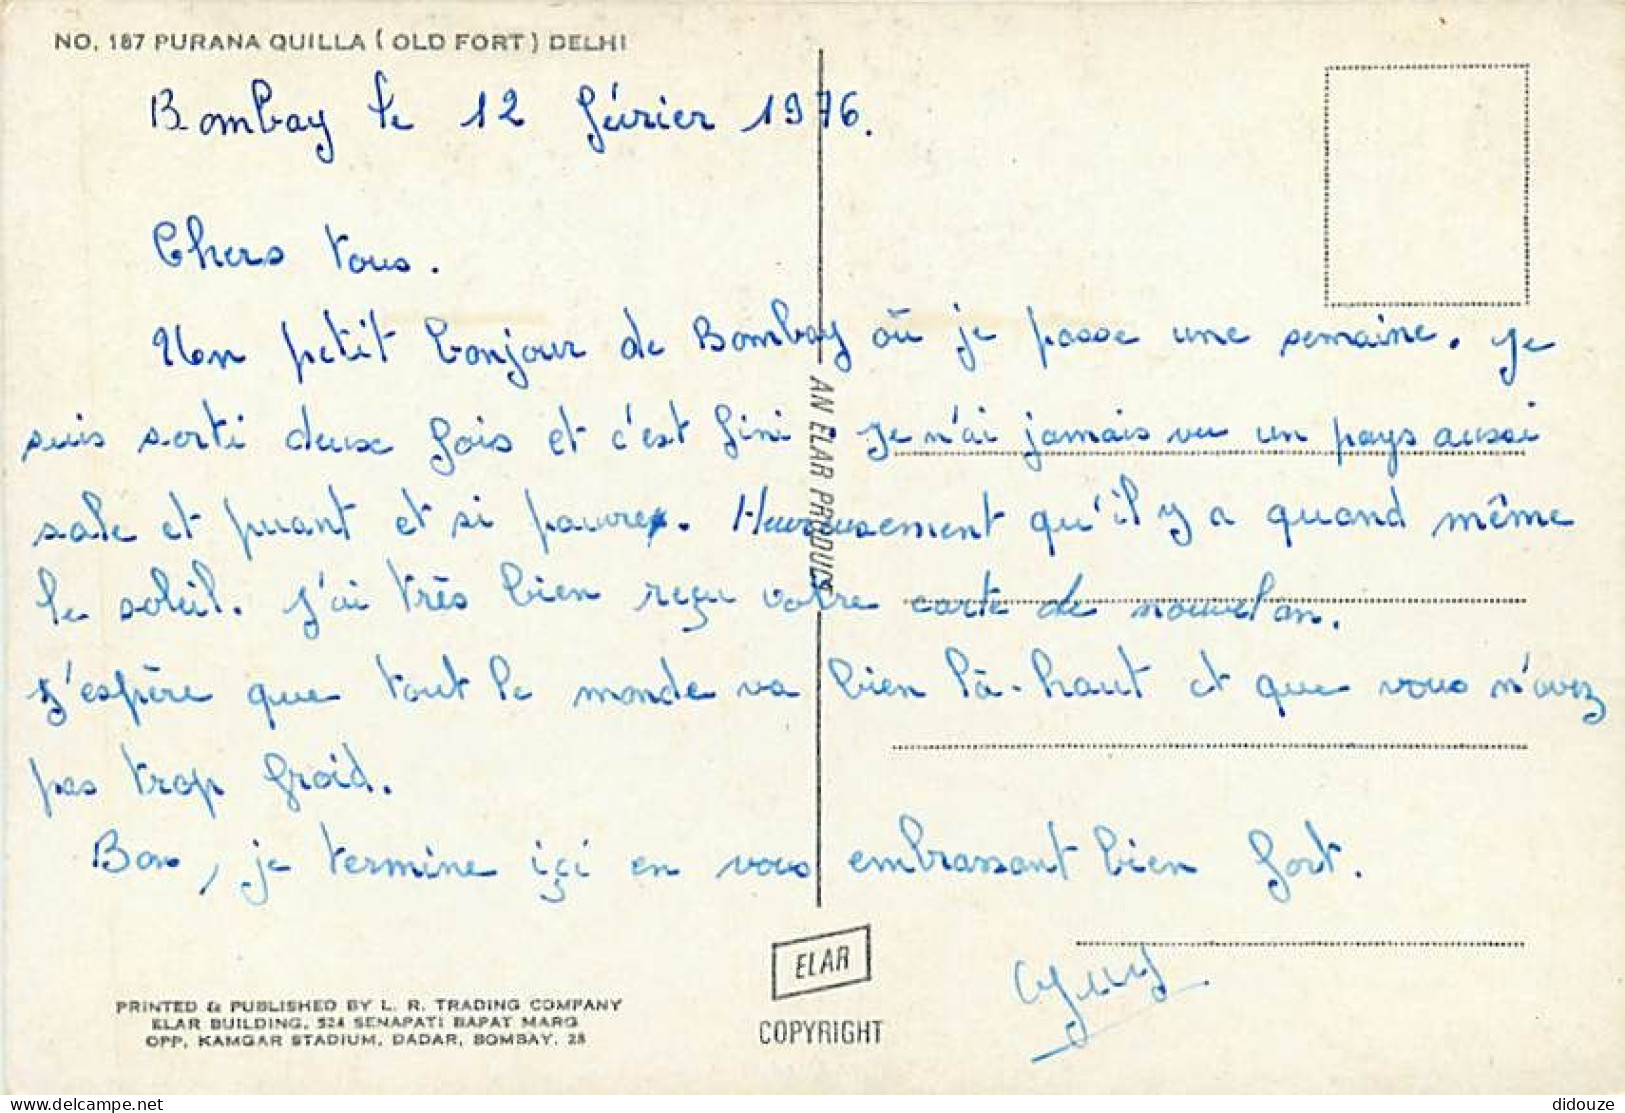 NO. 187 PURANA QUILLA ( OLD FORT ) DELHI
Bombay le 12 février 1976.
Chers tous.
Un petit bonjour de Bombay où je passe une semaine. Je
suis sorti deux fois et c'est fini. Je n'ai jamais vu un pays aussi
sale et puant et si pauvre. Heureusement qu'il y a quand même
le soleil. J'ai très bien reçu votre carte de nouvel an.
J'espère que tout le monde va bien là-haut et que vous n'avez
pas trop froid.
Bon, je termine içi en vous embrassant bien fort.
Guy.
AN ELAR PRODUCT
ELAR
COPYRIGHT
PRINTED & PUBLISHED BY L. R. TRADING COMPANY
ELAR BUILDING, 524 SENAPATI BAPAT MARG
OPP, KAMGAR STADIUM, DADAR, BOMBAY. 28
Delcampe.net
didouze